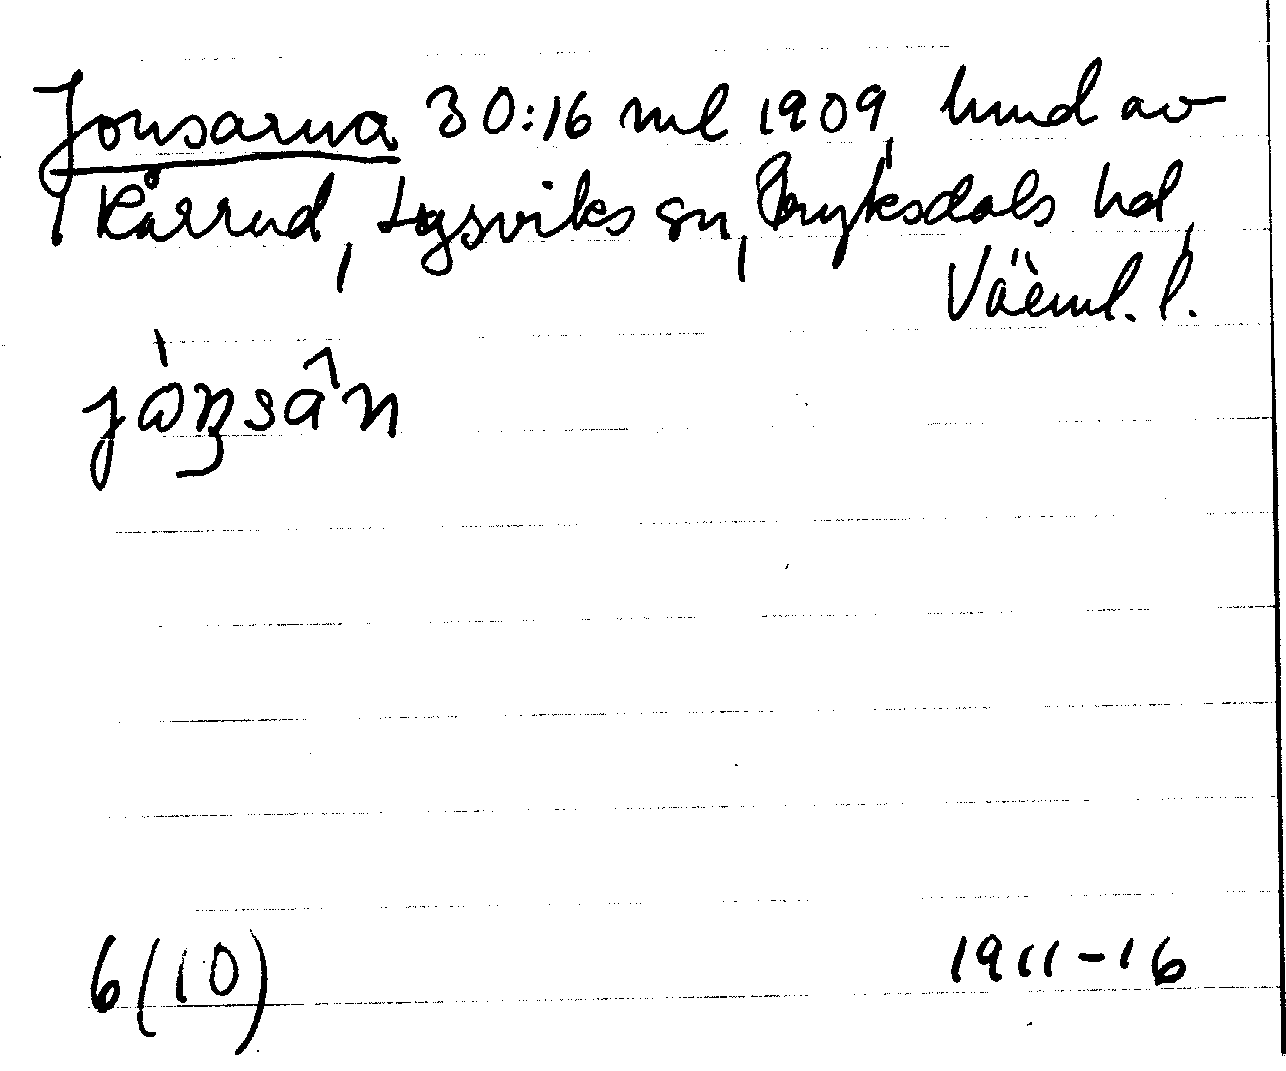 Jonsarna 30:16 ml 1909, hmd av
Kårrud, Lysviks sn, Fryksdals hd,
Värml. l.
jò̩nsân
6(10)
1911-16